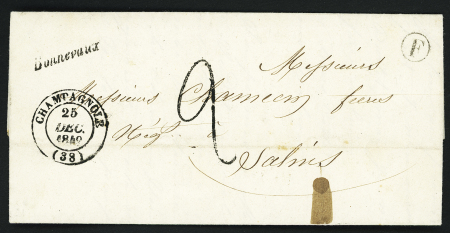 Bonnevaux
F
CHAMPAGNOLE
25
DEC.
1849
(38)
2
Messieurs
Messieurs Chamecin frères
Nég.ts à
Salins